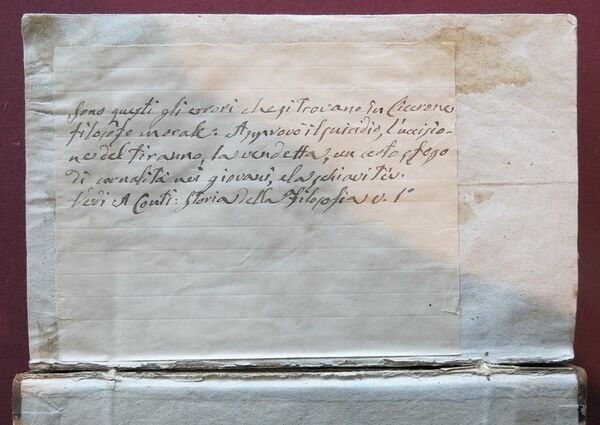 Sono questi gli errori che si trovano in Cicerone
filosofo morale: Approvò il suicidio, l'uccisio-
ne del tiranno, la vendetta, un certo sfogo
di carnalità nei giovani, e la schiavitù.
Vedi A Conti: Storia della Filosofia v. 1º